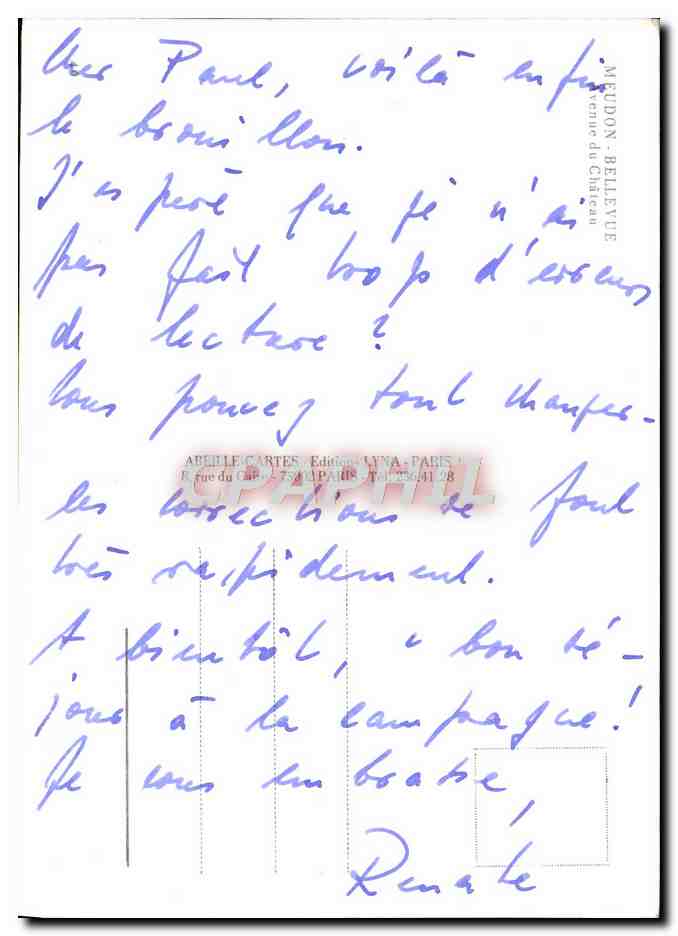 Cher Paul, voilà enfin
le brouillon.
J'espère que je n'ai
pas fait trop d'erreurs
de lecture ?
Vous pouvez tout changer -
les corrections se font
très rapidement.
A bientôt, bon sé-
jour à la campagne !
Je vous embrasse,
Renate
MEUDON - BELLEVUE
Avenue du Château
ABEILLE-CARTES - Editions LYNA - PARIS
8, rue du Caire - 75002 PARIS - Tél. 236.41.28
CPAPHIL